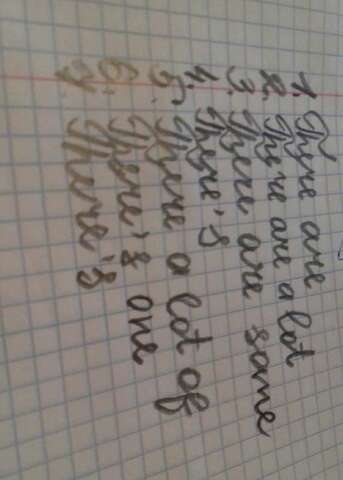 1. There are
2. There are a lot
3. There are same
4. There's
5. There a lot of
6. There's one
7. There's